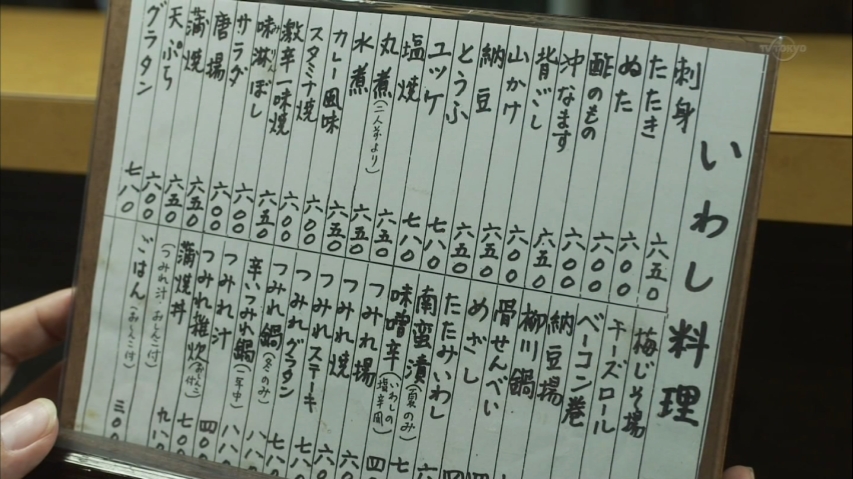 いわし料理
刺身 六五〇
たたき 六〇〇
ぬた 六〇〇
酢のもの 六〇〇
沖なます 六五〇
背ごし 六〇〇
山かけ 六五〇
納豆 六五〇
とうふ 七八〇
ユッケ 七八〇
塩焼 六五〇
丸煮(二人前より) 六五〇
水煮 六五〇
カレー風味 六〇〇
スタミナ焼 六〇〇
激辛一味焼 六五〇
味淋ぼし 六〇〇
サラダ 六〇〇
唐場 六五〇
蒲焼 六五〇
天ぷら 六〇〇
グラタン 七八〇
梅じそ場
チーズロール
ベーコン巻
納豆場
柳川鍋
骨せんべい
めざし
たたみいわし
南蛮漬(夏のみ)
味噌辛(いわしの塩辛風)
つみれ場
つみれ焼
つみれステーキ
つみれグラタン
つみれ鍋(冬のみ)
辛いつみれ鍋(年中)
つみれ汁
つみれ雑炊(おしんこ)
蒲焼丼
(つみれ汁・おしんこ付)
ごはん(おしんこ付) 三〇〇
TV TOKYO